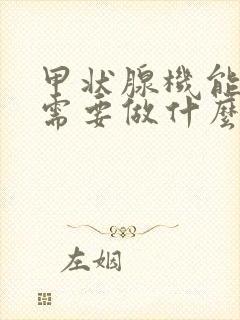 甲状腺機能
需要做什麼
左姻